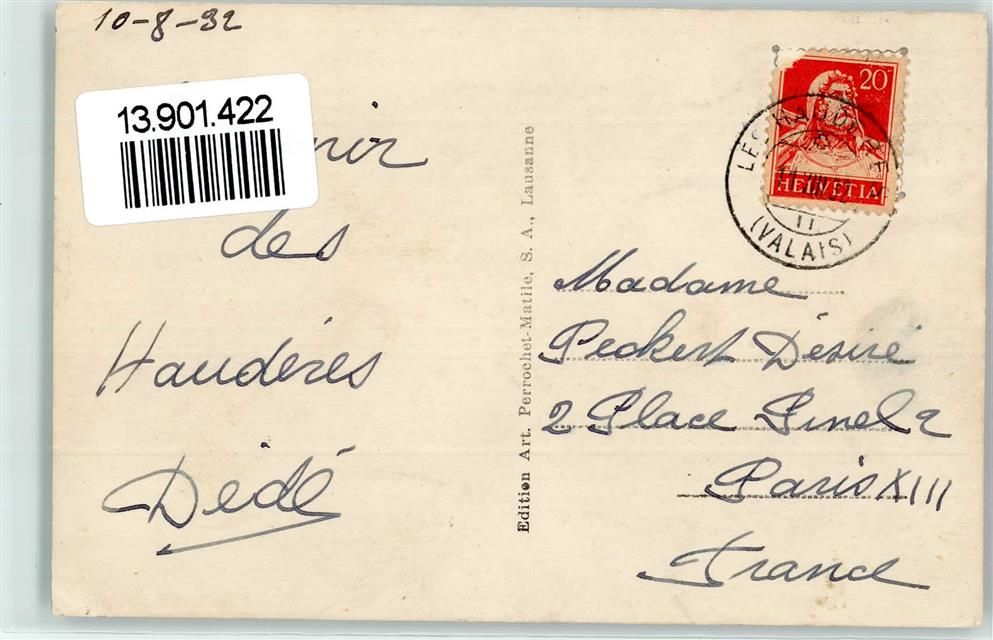 10-8-32
13.901.422
des
Haudères
Dédé
Edition Art. Perrochet-Matile, S. A., Lausanne
20
HELVETIA
LES HAUDÈRES
(VALAIS)
Madame
Peckert Désiré
2 Place Pinel 2
Paris XIII
France